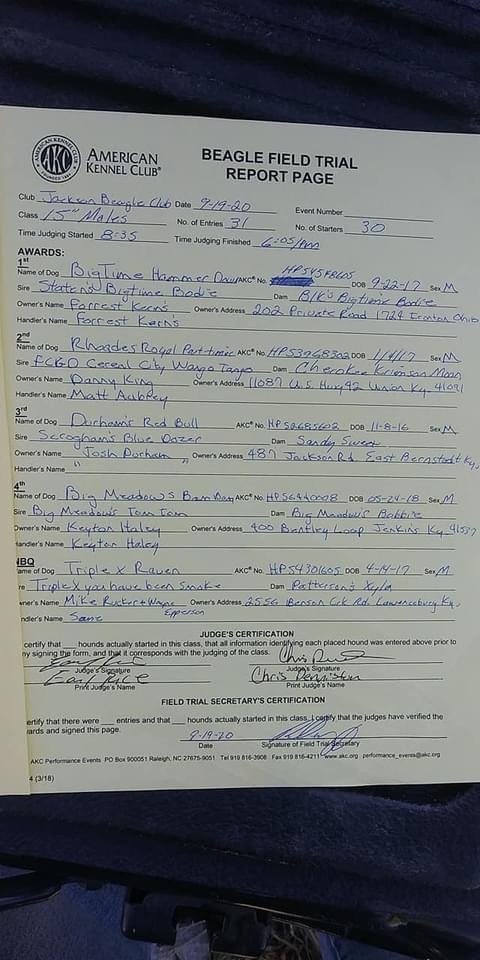 AMERICAN KENNEL CLUB
FOUNDED 1884
AKC
AMERICAN
KENNEL CLUB®
BEAGLE FIELD TRIAL
REPORT PAGE
Club Jackson Beagle Club Date 9-19-20 Event Number
Class 15" Males No. of Entries 31 No. of Starters 30
Time Judging Started 8:35 Time Judging Finished 6:05/PM
AWARDS:
1st
Name of Dog BigTime Hammer Down AKC® No. HP54548605 DOB 9-22-17 Sex M
Sire Staten's Bigtime Bodie Dam Blk's Bigtime Bodie
Owner's Name Forrest Kerns Owner's Address 202 Private Road 1724 Ironton Ohio
Handler's Name Forrest Kerns
2nd
Name of Dog Rhoades Royal Part-time AKC® No. HP53968302 DOB 1/4/17 Sex M
Sire FCGD Cereal City Wango Tango Dam Cherokee Krimson Moon
Owner's Name Danny King Owner's Address 11087 U.S. Hwy 42 Union Ky. 41091
Handler's Name Matt Aubrey
3rd
Name of Dog Durham's Red Bull AKC® No. HP52685602 DOB 11-8-16 Sex M
Sire Scrogham's Blue Dozer Dam Sandy Sween
Owner's Name Josh Durham Owner's Address 487 Jackson Rd. East Bernstadt Ky.
Handler's Name " "
4th
Name of Dog Big Meadows Bam Bam AKC® No. HP56440008 DOB 05-24-18 Sex M
Sire Big Meadow's Tom Tom Dam Big Meadow's Bobbie
Owner's Name Keyton Haley Owner's Address 400 Bentley Loop Jenkins Ky. 41537
Handler's Name Keyton Haley
NBQ
ame of Dog Triple X Raven AKC® No. HP54301605 DOB 4-14-17 Sex M
re Triple X you have been Smoke Dam Patterson's Xyla
wner's Name Mike Rucker + Wayne Epperson Owner's Address 2556 Benson Crk Rd. Lawrenceburg Ky.
ndler's Name Same
JUDGE'S CERTIFICATION
certify that ___ hounds actually started in this class, that all information identifying each placed hound was entered above prior to
my signing the form, and that it corresponds with the judging of the class.
Judge's Signature Judge's Signature
Earl Rice Chris Denniston
Print Judge's Name Print Judge's Name
FIELD TRIAL SECRETARY'S CERTIFICATION
ertify that there were ___ entries and that ___ hounds actually started in this class, I certify that the judges have verified the
wards and signed this page.
9-19-20
Date Signature of Field Trial Secretary
AKC Performance Events PO Box 900051 Raleigh, NC 27675-9051 Tel 919 816-3908 Fax 919 816-4211 www.akc.org performance_events@akc.org
4 (3/18)